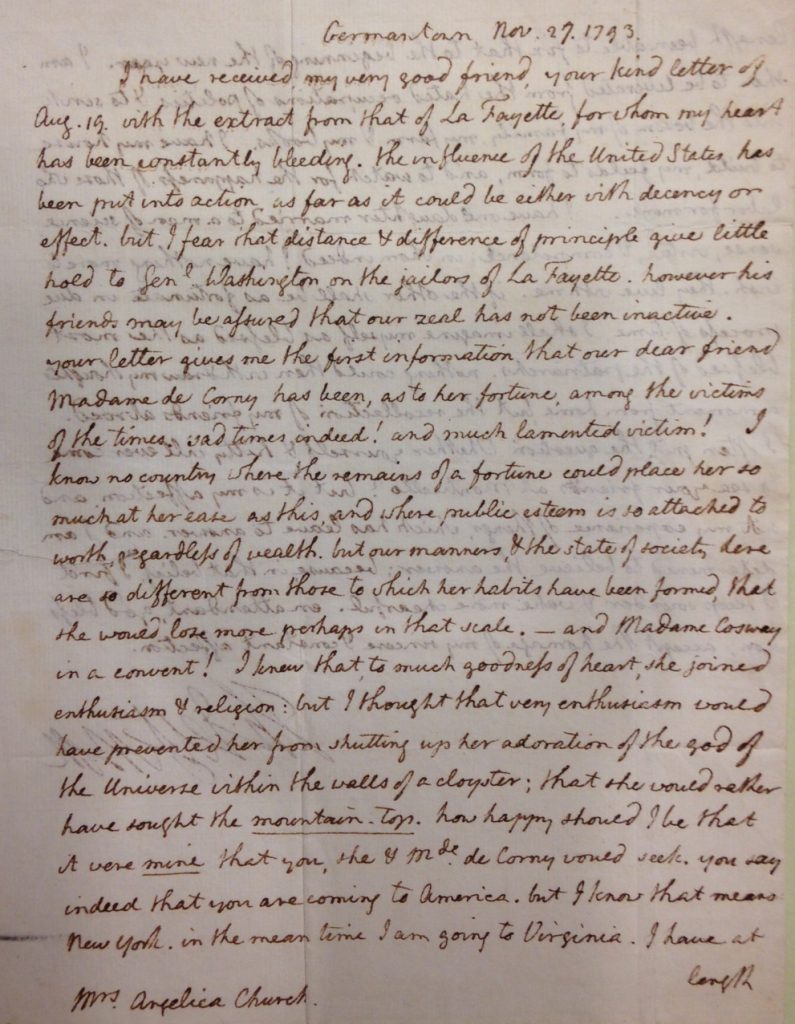 Germantown Nov. 27. 1793.
I have received, my very good friend, your kind letter of
Aug. 19. with the extract from that of La Fayette, for whom my heart
has been constantly bleeding. the influence of the United States has
been put into action, as far as it could be either with decency or
effect. but I fear that distance & difference of principle give little
hold to Genl. Washington on the jailors of La Fayette. however his
friends may be assured that our zeal has not been inactive.
your letter gives me the first information that our dear friend
Madame de Corny has been, as to her fortune, among the victims
of the times. sad times indeed! and much lamented victim! I
know no country where the remains of a fortune could place her so
much at her ease as this, and where public esteem is so attached to
worth, regardless of wealth. but our manners, & the state of society here
are so different from those to which her habits have been formed, that
she would lose more perhaps in that scale. — and Madame Cosway
in a convent! I knew that, to much goodness of heart, she joined
enthusiasm & religion: but I thought that very enthusiasm would
have prevented her from shutting up her adoration of the god of
the Universe within the walls of a cloyster; that she would rather
have sought the mountain-top. how happy should I be that
it were mine that you, she & Mde. de Corny would seek. you say
indeed that you are coming to America. but I know that means
New York. in the mean time I am going to Virginia. I have at
length
Mrs. Angelica Church.